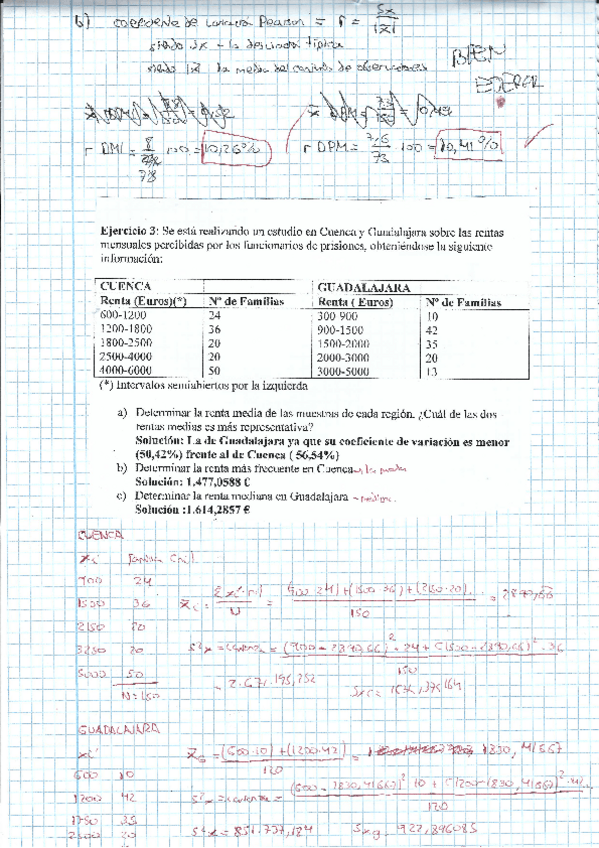 b) coeficiente de variación Pearson = r = Sx / |x̄|
siendo Sx = la desviación típica
siendo |x̄| la media del conjunto de observaciones
BIEN
r DML = 8 / 78 · 100 = 10,26% r DPM = 7,6 / 73 · 100 = 10,41%
Ejercicio 3: Se está realizando un estudio en Cuenca y Guadalajara sobre las rentas
mensuales percibidas por los funcionarios de prisiones, obteniéndose la siguiente
información:
CUENCA GUADALAJARA
Renta (Euros)(*) Nº de Familias Renta ( Euros) Nº de Familias
600-1200 24 300-900 10
1200-1800 36 900-1500 42
1800-2500 20 1500-2000 35
2500-4000 20 2000-3000 20
4000-6000 50 3000-5000 13
(*) Intervalos semiabiertos por la izquierda
a) Determinar la renta media de las muestras de cada región. ¿Cuál de las dos
rentas medias es más representativa?
Solución: La de Guadalajara ya que su coeficiente de variación es menor
(50,42%) frente al de Cuenca ( 56,54%)
b) Determinar la renta más frecuente en Cuenca
Solución: 1.477,0588 €
c) Determinar la renta mediana en Guadalajara
Solución :1.614,2857 €
CUENCA
xi Familias (ni)
900 24
1500 36
2150 20
3250 20
5000 50
N=150
x̄c = Σxi·ni / N = (900·24)+(1500·36)+(2150·20)... / 150 = 2840,66
s²x = cuenca = (900-2840,66)²·24+(1500-2840,66)²·36 / 150
GUADALAJARA
xi
600 10
1200 42
1750 35
2500 20
x̄G = (600·10)+(1200·42) / 120 = 1830,41667
s²x = (600-1830,41667)²·10+(1200-1830,41667)²·42... / 120
s²x = 851.737,184 Sxg = 922,896085